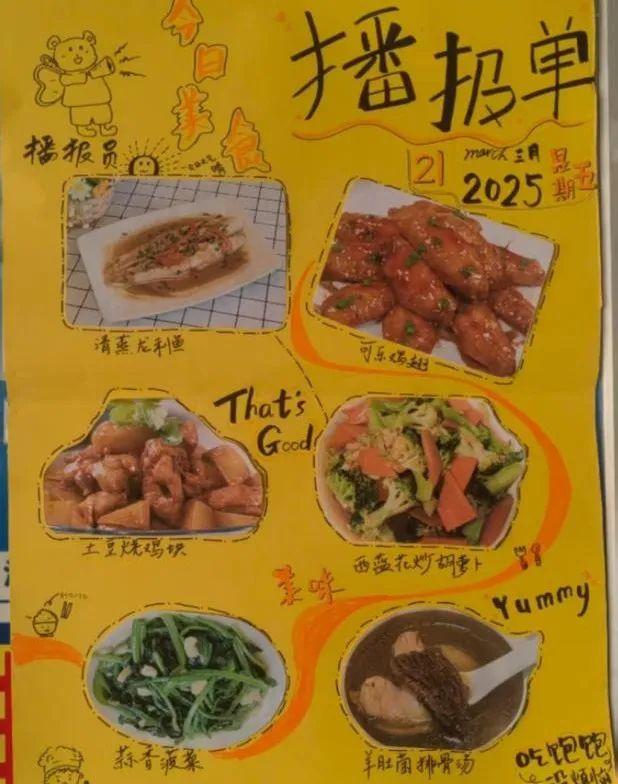 今日美食
播报单
播报员
21 march 三月 星期五
2025
清蒸龙利鱼
可乐鸡翅
That's
Good
土豆烧鸡块
西蓝花炒胡萝卜
美味
Yummy
蒜香菠菜
羊肚菌排骨汤
吃饱饱
没烦恼